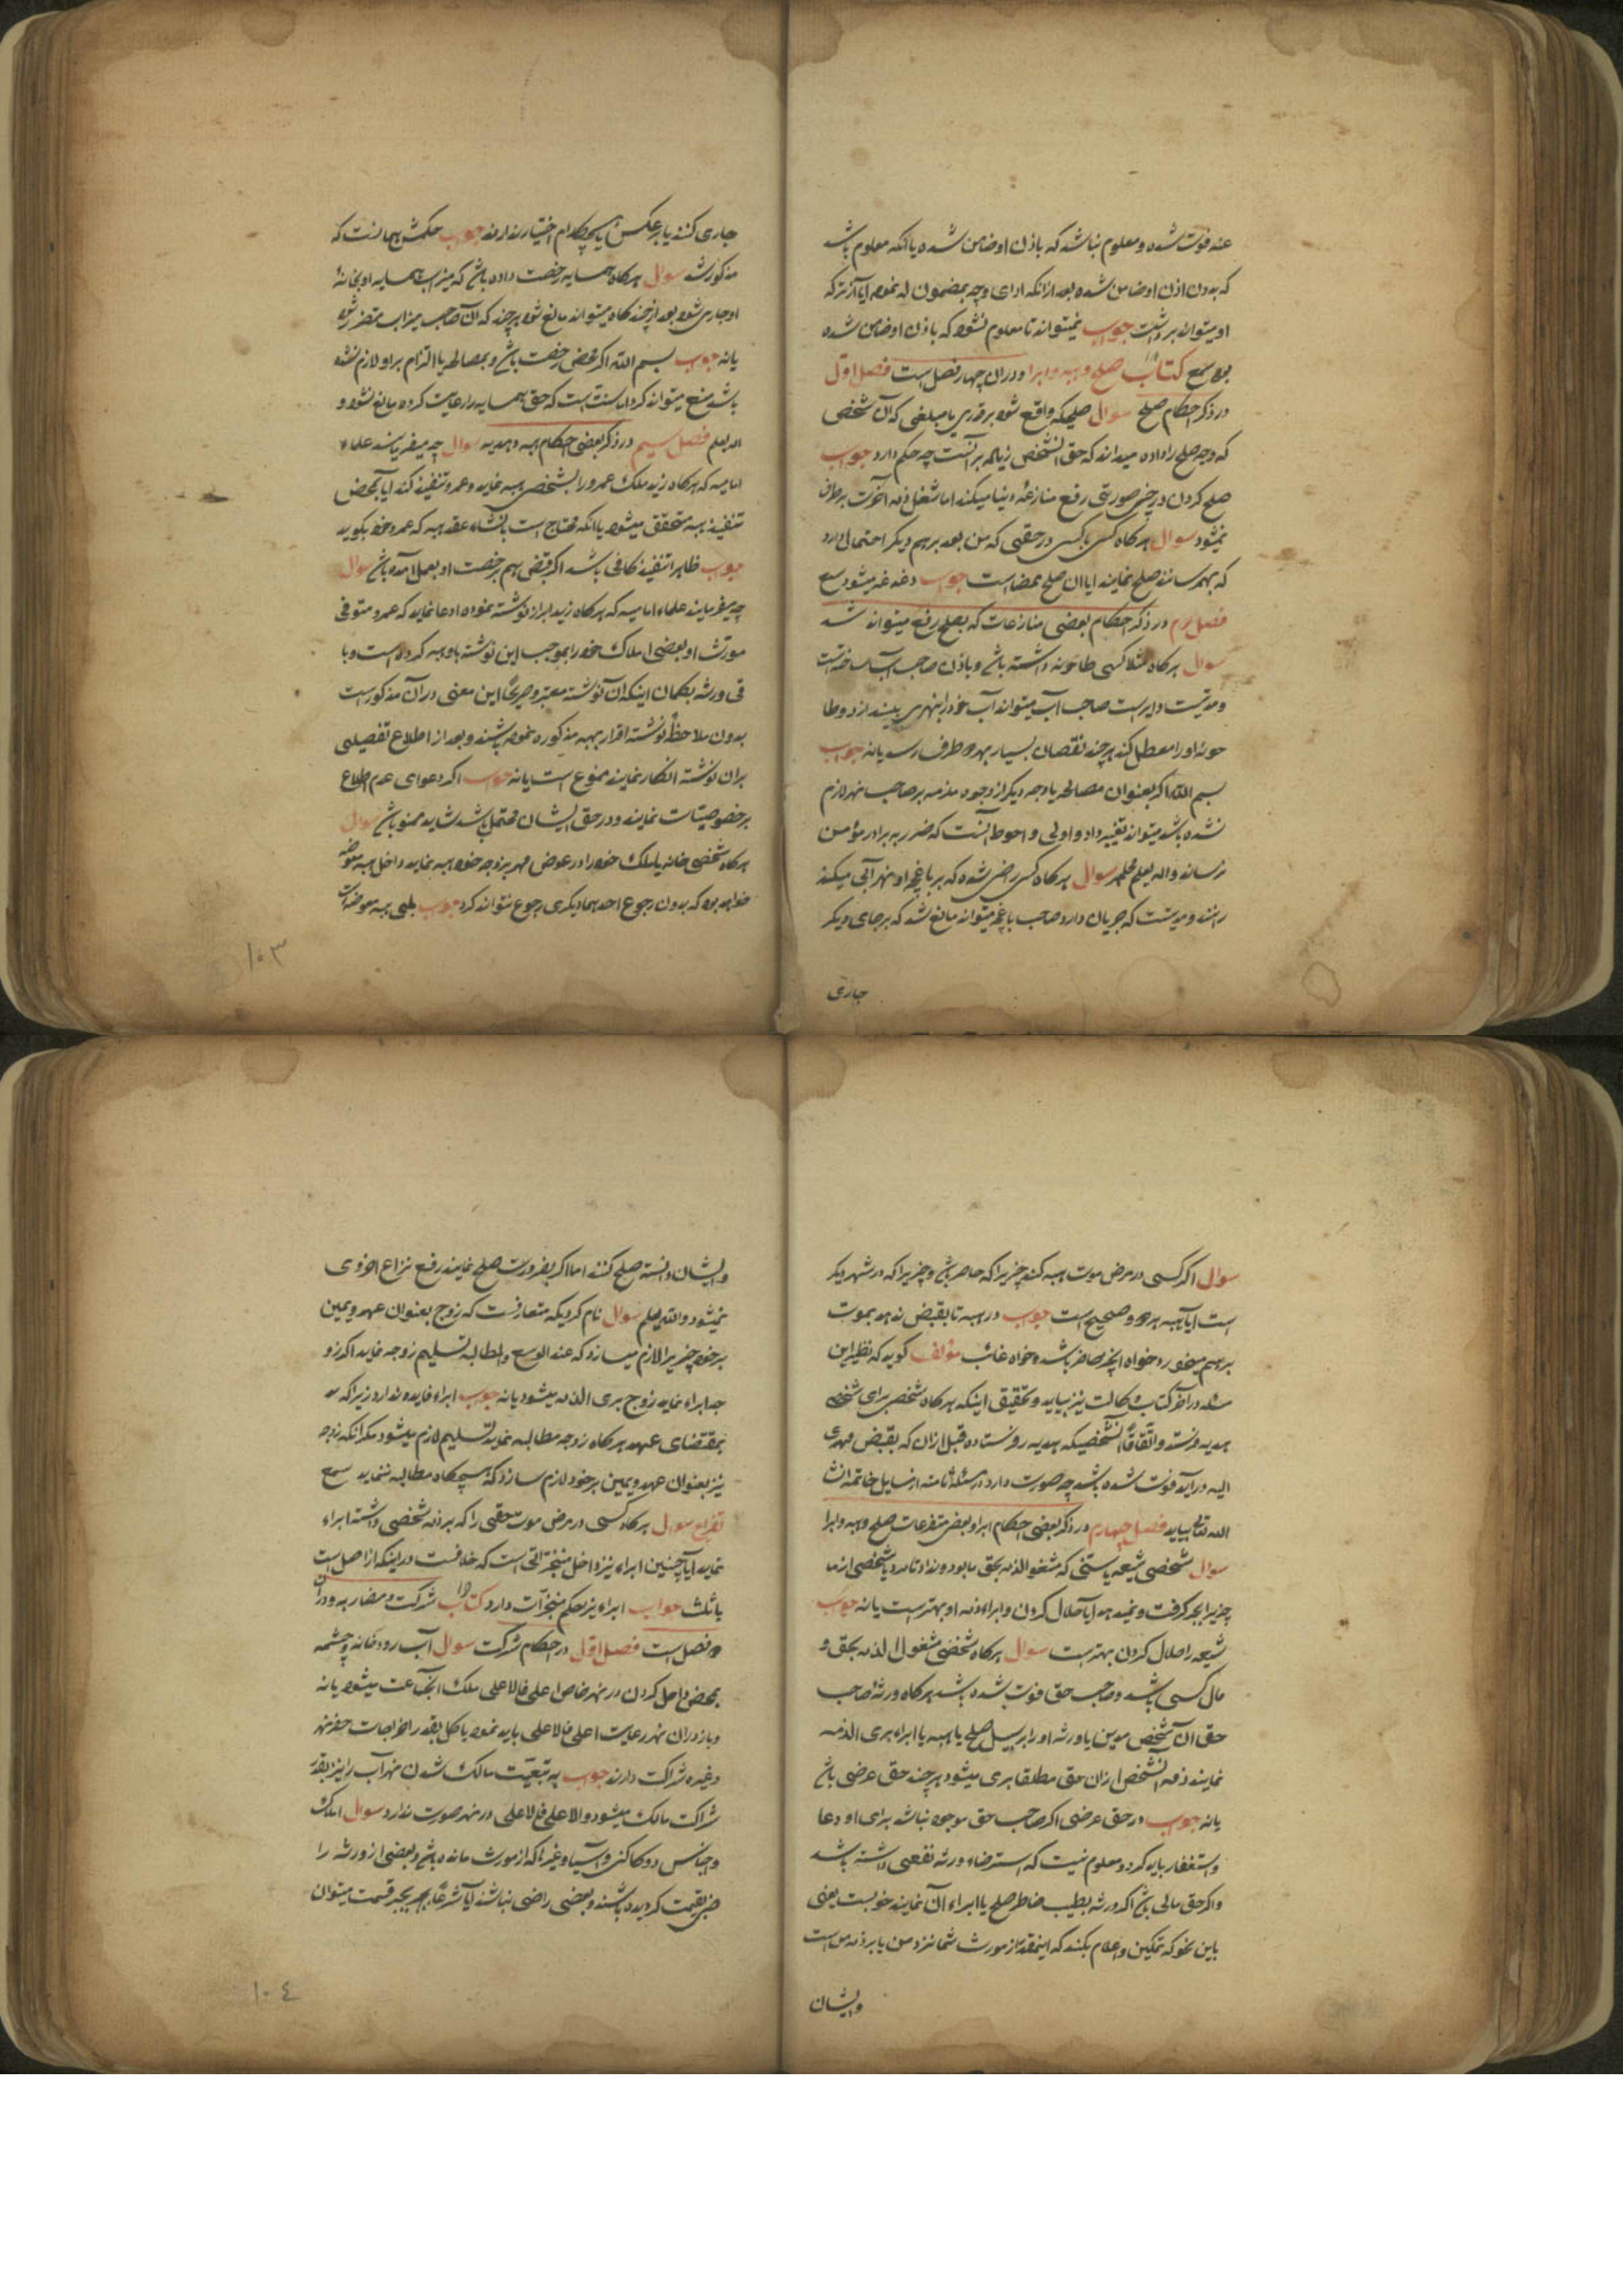 عنه فوت شده و معلوم نباشد که باذن او ضامن شده یا انکه معلوم باشد
که بدون اذن او ضامن شده بعد از انکه ادای وجه مضمون له نموده ایا از ترکه
او میتواند برداشت جواب نمیتواند تا معلوم نشود که باذن او ضامن شده
بوده سمع کتاب صلح و هبه و ابرا و دران چهار فصل است فصل اول
در ذکر احکام صلح سوال صلحیکه واقع شود بر قدری یا مبلغی که آن شخص
که وجه صلح را داده میداند که حق آنشخص زیاده بر آنست چه حکم دارد جواب
صلح کردن در چنین صورتی رفع منازعهٔ دنیا میکند اما شغل ذمه آخرت برطرف
نمیشود سوال هرکاه کسی با کسی در حقی که من بعد بر هم دیکر احتمال دارد
که بهم رسانند صلح نمایند ایا ان صلح ممضا است جواب دغدغه میشود سمع
فصل دوم در ذکر احکام بعضی منازعات که بصلح رفع میتواند شد
سوال هرکاه مثلا کسی طاحونه داشته باشد و باذن صاحب آب ساخته است
و مدتیست دایر است صاحب آب میتواند آب خود را بنهری بیندازد و طا
حونه او را معطل کند هرچند نقصان بسیار بهر دو طرف رسد یانه جواب
بسم الله اکر بعنوان مصالحه یا وجه دیکر از وجوه ملزمه بر صاحب نهر لازم
نشده باشد میتواند تغییر داد و اولی و احوط آنست که ضرر به برادر مؤمن
نرساند والله یعلم سوال هرکاه کسی راضی شده که بر باغچه او نهر آبی میکند
رانند و مدتیست که جریان دارد صاحب باغچه میتواند مانع شد که بر جای دیکر
جاری
جاری کنند یا بر عکس یا هیچکدام اختیار ندارند جواب حکمش همانست که
مذکور شد سوال هرکاه همسایه رخصت داده باشد که میزاب همسایه او بخانهٔ
او جاری شود بعد از چند کاه میتواند مانع شود هرچند که ان صاحب میزاب متضرر شود
یانه جواب بسم الله اکر محض رخصت باشد و بمصالحه یا التزام بر او لازم نشده
باشد منع میتواند کرد اما سنت است که حق همسایه را رعایت کرده مانع نشود و
الله یعلم فصل سیم در ذکر بعضی احکام هبه و هدیه سوال چه میفرمایند علماء
امامیه که هرکاه زید ملک عمرو را بشخصی هبه نماید و عمرو تنفیذ کند ایا بمحض
تنفیذ هبه متحقق میشود یا انکه محتاج است بانشاء عقد هبه که عمرو خود بکوید
جواب ظاهرا تنفیذ کافی باشد اکر قبض هم برخصت او بعمل امده باشد سوال
چه میفرمایند علماء امامیه که هرکاه زید ابراز نوشته نموده ادعا نماید که عمرو متوفی
مورث او بعضی املاک خود را بموجب این نوشته باو هبه کرده است و با
قی ورثه بکمان اینکه ان نوشته معتبر و صریحا این معنی دران مذکور است
بدون ملاحظهٔ نوشته اقرار بهبه مذکوره نموده باشند و بعد از اطلاع تفصیلی
بران نوشته انکار نمایند ممنوع است یانه جواب اکر دعوای عدم اطلاع
بر خصوصیات نمایند و در حق ایشان محتمل باشد شاید مسموع باشد سوال
هرکاه شخصی خانه یا ملک خود را در عوض مهر بزوجه خود هبه نماید داخل هبه معوضه
خواهد بود که بدون رجوع احدهما دیکری رجوع نتواند کرد جواب بلی هبه معوضه است
۱۰۳
سوال اکر کسی در مرض موت هبه کند چیزیرا که حاضر باشد و چیزیرا که در شهر دیکر
است ایا هبه هر دو صحیح است جواب در هبه تا بقبض ندهد بموت
برهم میخورد خواه انچه حاضر باشد و خواه غائب مؤلف کوید که نظیر این
مسئله در اخر کتاب وکالت نیز بیاید و تحقیق اینکه هرکاه شخصی برای شخصی
هدیه فرستد و اتفاقا آنشخصیکه هدیه رو فرستاده قبل ازان که بقبض مهدی
الیه دراید فوت شده باشد چه صورت دارد در مسئله ثامنه از مسایل خاتمه انشا
الله تعالی بیاید فصل چهارم در ذکر بعضی احکام ابرا و بعض متفرعات صلح و هبه و ابرا
سوال شخصی شیعه یا سنی که مشغول الذمه بحق ما بود و نداد تا مرد یا شخصی از ما
چیزیرا بجبر کرفت و نمیدهد ایا حلال کردن و ابراء ذمه او بهتر است یانه جواب
شیعه را حلال کردن بهتر است سوال هرکاه شخصی مشغول الذمه بحق و
مال کسی باشد و صاحب حق فوت شده باشد هرکاه ورثهٔ صاحب
حق ان شخص مدین یا ورثه او را بر سبیل صلح یا هبه یا ابراء بری الذمه
نمایند ذمه آنشخص ازان حق مطلقا بری میشود هرچند حق عرضی باشد
یانه جواب در حق عرضی اکر صاحب حق موجود نباشد برای او دعا
و استغفار باید کرد و معلوم نیست که استرضاء ورثه نفعی داشته باشد
و اکر حق مالی باشد اکر ورثه بطیب خاطر صلح یا ابراء آن نمایند خوبست یعنی
باین نحو که تمکین و اعلام بکند که اینمقدار از مورث شما نزد من یا بر ذمه من است
و ایشان
و ایشان دانسته صلح کنند اما اکر بضرورت صلح نمایند رفع نزاع اخروی
نمیشود والله یعلم سوال نام کردیکه متعارفست که زوج بعنوان عهد و یمین
بر خود چیزیرا لازم میسازد که عند الوسع و المطالبه تسلیم زوجه نماید اکر زو
جه ابراء نماید زوج بری الذمه میشود یانه جواب ابراء فایده ندارد زیرا که
بمقتضای عهد هرکاه زوجه مطالبه نماید تسلیم لازم میشود مکر انکه زوجه
نیز بعنوان عهد و یمین بر خود لازم سازد که هیچکاه مطالبه ننماید سمع
تفریع سوال هرکاه کسی در مرض موت حقی را که بر ذمه شخصی داشته ابراء
نماید ایا چنین ابراء نیز داخل منجزاتی است که خلافست در اینکه از اصل است
یا ثلث جواب ابراء نیز حکم منجزات دارد کتاب شرکت و مضاربه و دران
دو فصل است فصل اول در احکام شرکت سوال آب رودخانه و چشمه
بمحض داخل کردن در نهر خاص اعلی فالاعلی ملک انجماعت میشود یانه
و باز دران نهر رعایت اعلی فالاعلی باید نمود یا کل بقدر اخراجات حفر نهر
و غیره شراکت دارند جواب به تبعیت مالک شدن نهر آب را نیز بقدر
شراکت مالک میشود و الاعلی فالاعلی در نهر صورت ندارد سوال املاک
و اجناس و دکاکین و آسیا و غیر اکه از مورث مانده باشد و بعضی از ورثه را
ضی بقیمت کردیده باشند و بعضی راضی نباشند آیا شرعا بجبر قسمت میتوان
۱۰۴